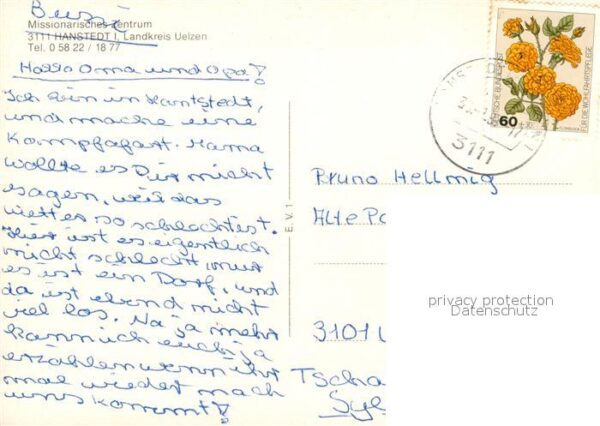 Missionarisches Zentrum
3111 HANSTEDT I, Landkreis Uelzen
Tel. 0 58 22 / 18 77
Hallo Oma und Opa!
Ich bin in Hanstedt,
und mache eine
Kampfafart. Mama
wollte es Dir nicht
sagen, weil das
wetter so schlecht ist.
Hier ist es eigentlich
nicht schlecht, nur
es ist ein Dorf, und
da ist ebend nicht
viel los. Na ja mehr
kann ich euch ja
erzählen wenn ihr
mal wieder nach
uns kommt!
E.V.1
60
FÜR DIE WOHLFAHRTSPFLEGE
3111
Bruno Hellmig
Alte Po
3101
Tscha
Syl
privacy protection
Datenschutz